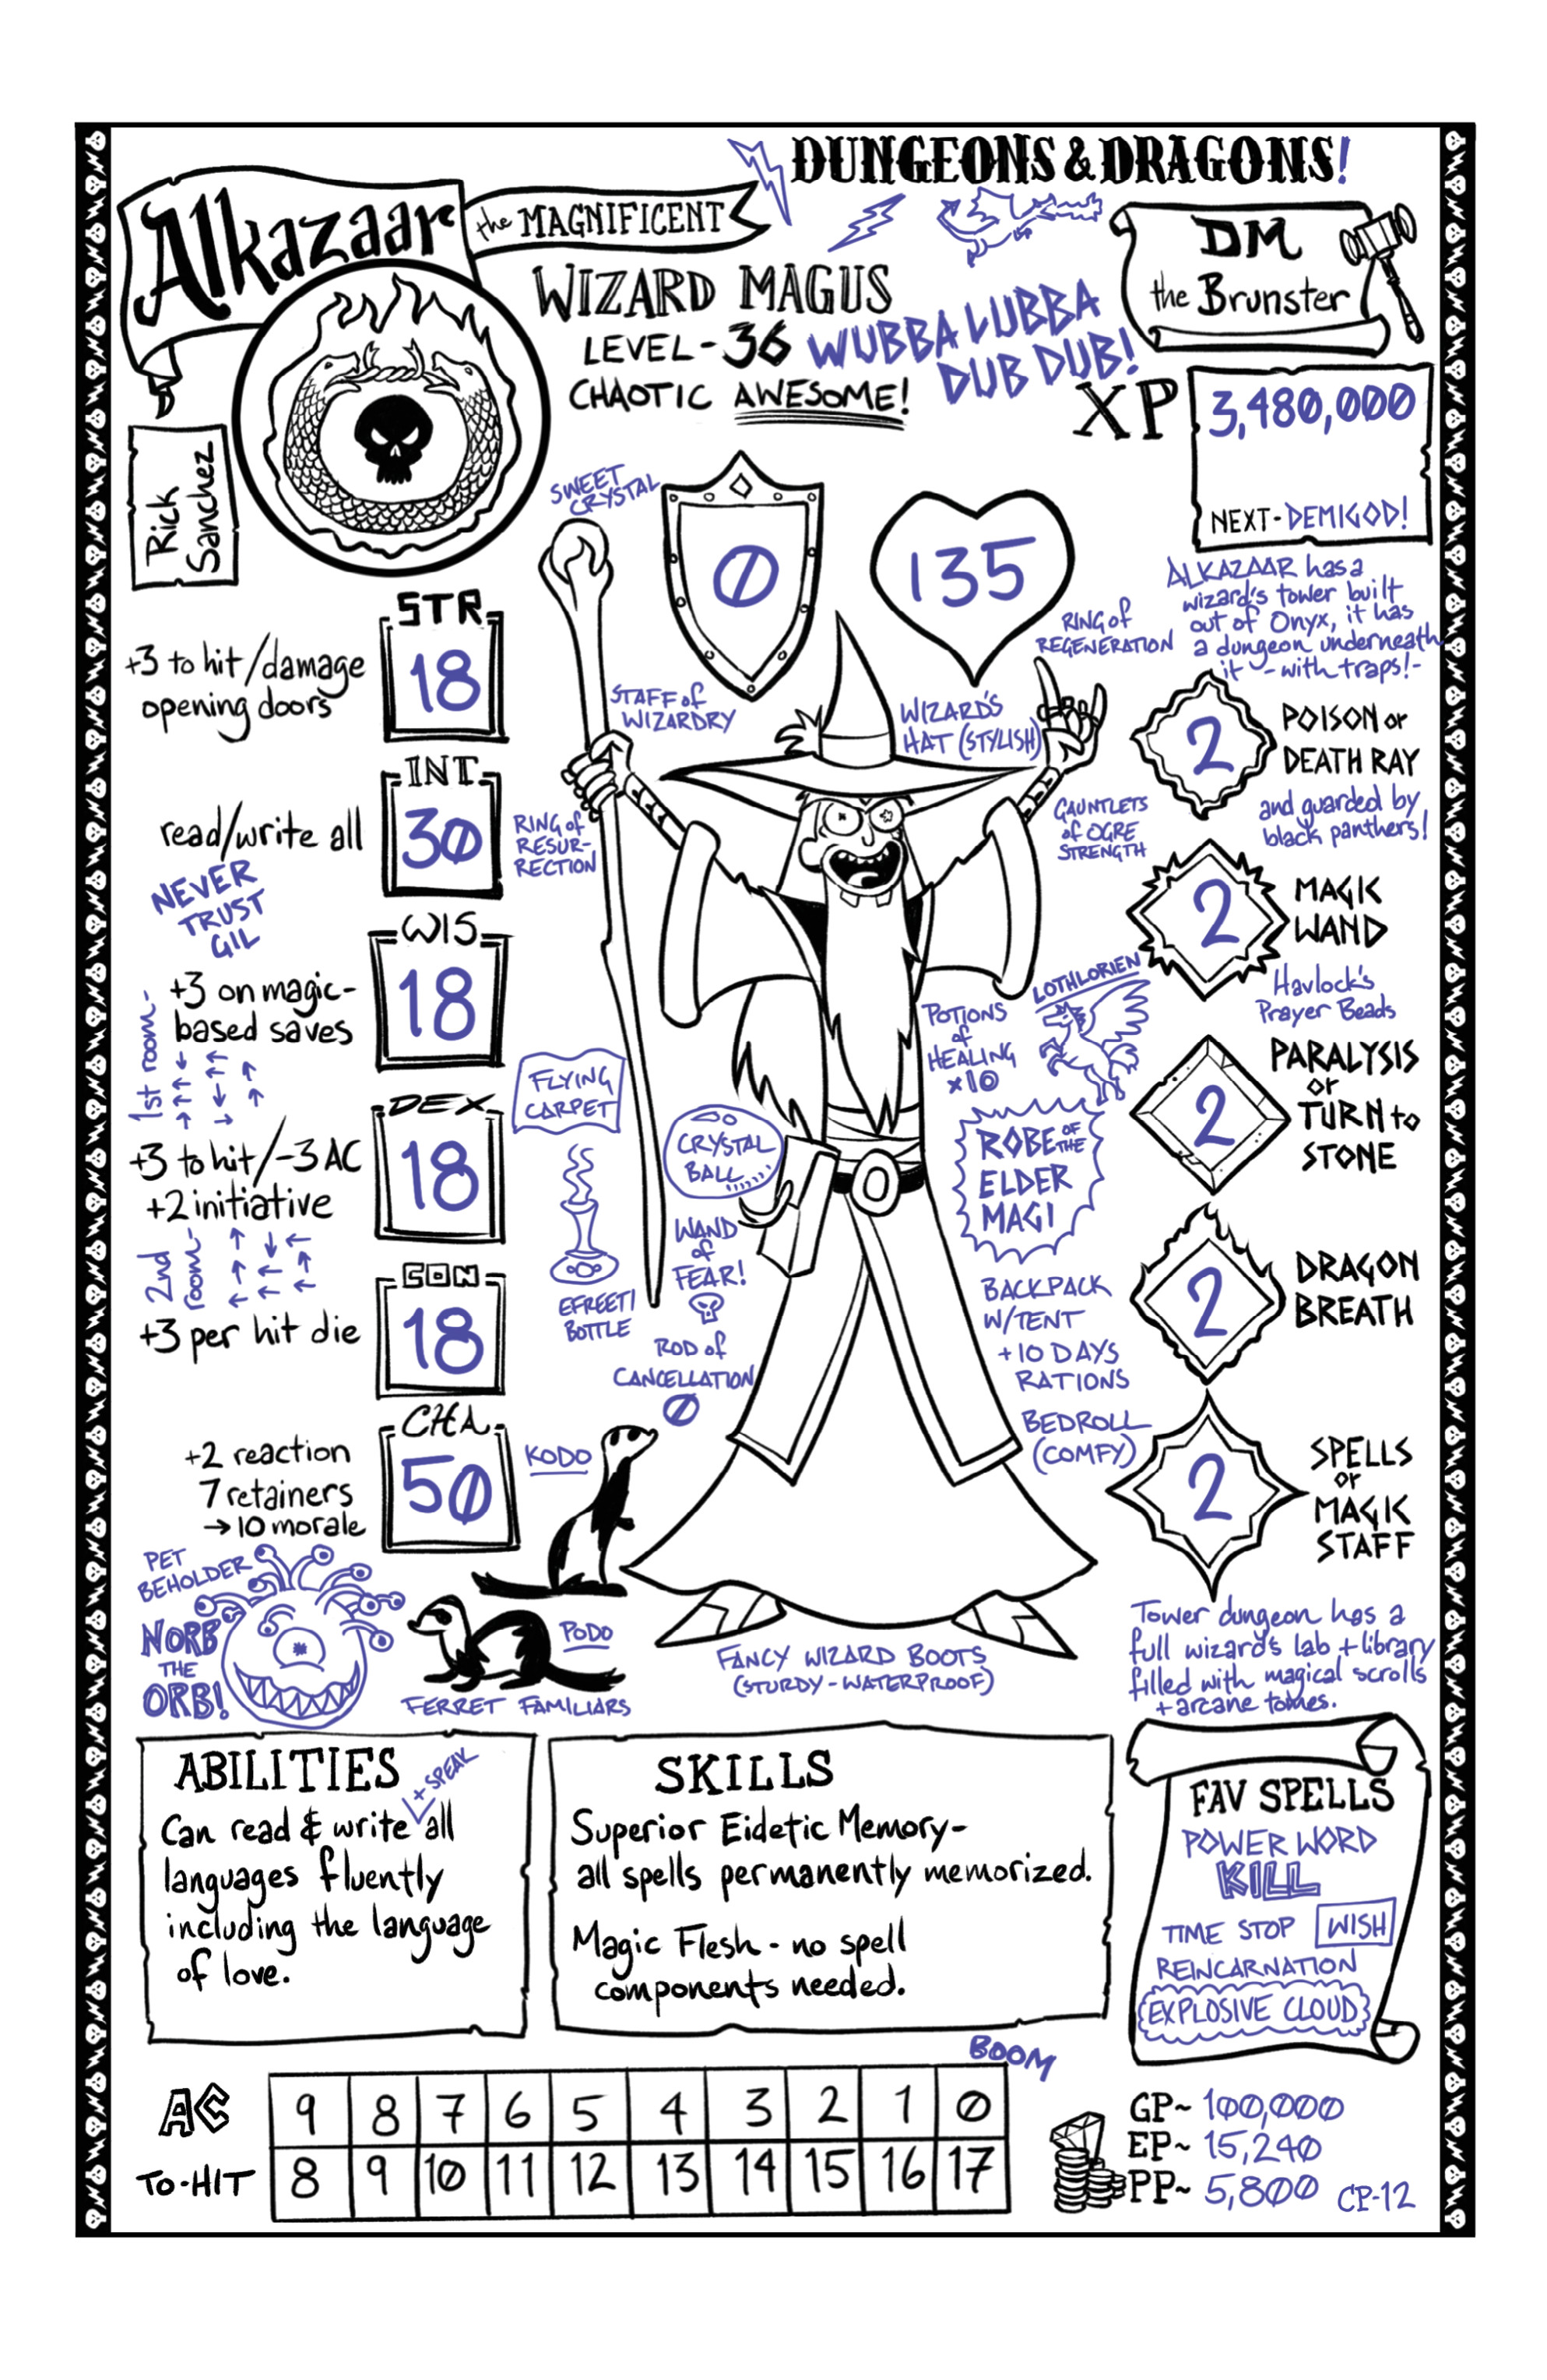 DUNGEONS & DRAGONS!
Alkazaar
the MAGNIFICENT
WIZARD MAGUS
LEVEL-36
CHAOTIC AWESOME!
WUBBA LUBBA
DUB DUB!
DM
the Brunster
XP
3,480,000
NEXT-DEMIGOD!
Rick
Sanchez
SWEET
CRYSTAL
0
135
RING of
REGENERATION
ALKAZAAR has a
wizard's tower built
out of Onyx, it has
a dungeon underneath
it - with traps!-
STR
18
+3 to hit/damage
opening doors
STAFF of
WIZARDRY
WIZARD'S
HAT (STYLISH)
2
POISON or
DEATH RAY
and guarded by
black panthers!
INT
30
read/write all
RING of
RESUR-
RECTION
GAUNTLETS
of OGRE
STRENGTH
NEVER
TRUST
GIL
2
MAGIC
WAND
Havlock's
Prayer Beads
WIS
18
+3 on magic-
based saves
1st room-
↓ ← ↑ ↑ → ← ← ↓ → ↑ ↑
FLYING
CARPET
POTIONS
of
HEALING
x10
LOTHLORIEN
2
PARALYSIS
or
TURN to
STONE
DEX
18
+3 to hit/-3 AC
+2 initiative
2nd
room-
↑ ↓ ← ↑ ← ↑ ← ← ←
CRYSTAL
BALL
ROBE OF THE
ELDER
MAGI
WAND
of
FEAR!
EFREETI
BOTTLE
2
DRAGON
BREATH
CON
18
+3 per hit die
ROD of
CANCELLATION
0
BACKPACK
W/TENT
+10 DAYS
RATIONS
BEDROLL
(COMFY)
CHA
50
+2 reaction
7 retainers
→10 morale
KODO
2
SPELLS
or
MAGIC
STAFF
PET
BEHOLDER
NORB
THE
ORB!
PODO
FERRET FAMILIARS
FANCY WIZARD BOOTS
(STURDY-WATERPROOF)
Tower dungeon has a
full wizard's lab + library
filled with magical scrolls
+ arcane tomes.
ABILITIES
+ SPEAK
Can read & write all
languages fluently
including the language
of love.
SKILLS
Superior Eidetic Memory-
all spells permanently memorized.
Magic Flesh - no spell
components needed.
FAV SPELLS
POWER WORD
KILL
TIME STOP WISH
REINCARNATION
EXPLOSIVE CLOUD
BOOM
AC 9 8 7 6 5 4 3 2 1 0
TO-HIT 8 9 10 11 12 13 14 15 16 17
GP~ 100,000
EP~ 15,240
PP~ 5,800 CP-12